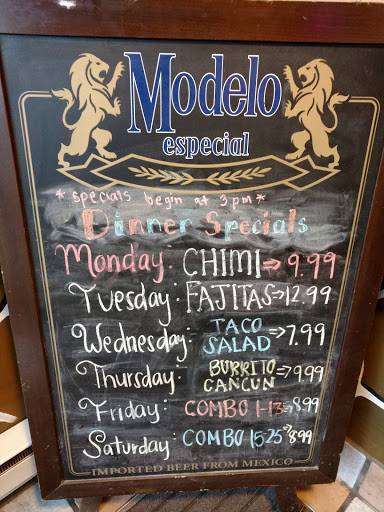 Modelo
especial
* specials begin at 3 pm *
Dinner Specials
Monday: CHIMI → 9.99
Tuesday: FAJITAS → 12.99
Wednesday: TACO SALAD → 7.99
Thursday: BURRITO CANCUN → 9.99
Friday: COMBO 1-13 → 8.99
Saturday: COMBO 15-25 → 8.99
IMPORTED BEER FROM MEXICO